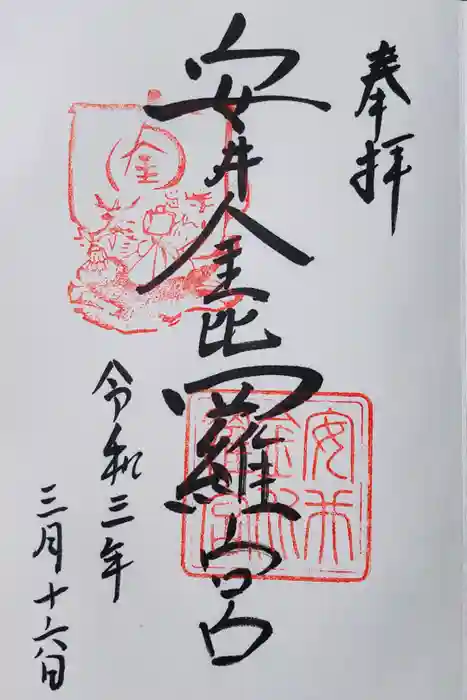 奉拝
安井金比羅宮
令和三年
三月十六日
金
安井
金比
羅宮